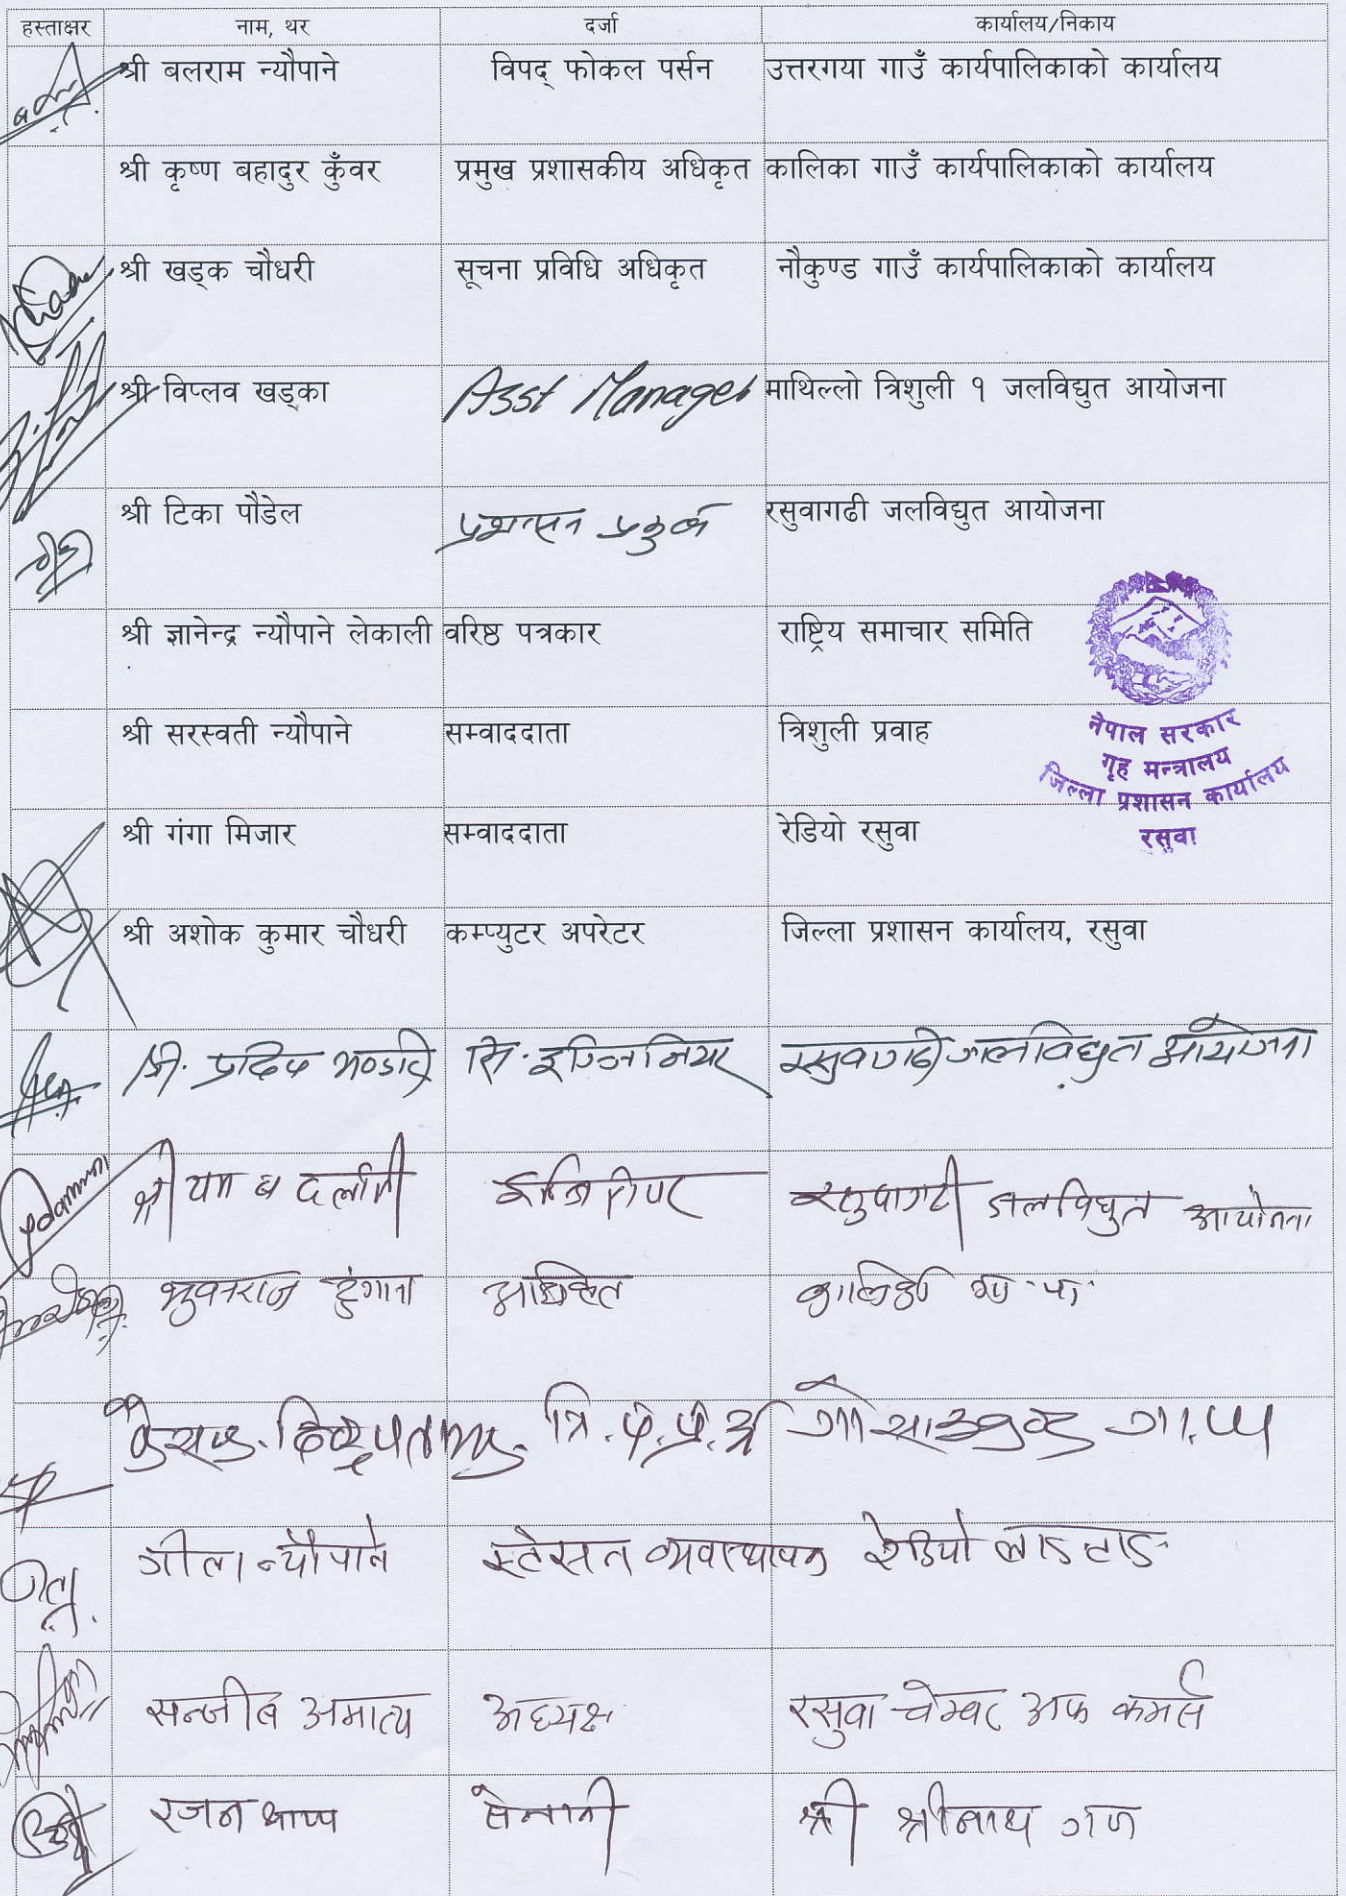 हस्ताक्षर नाम, थर दर्जा कार्यालय/निकाय
श्री बलराम न्यौपाने विपद् फोकल पर्सन उत्तरगया गाउँ कार्यपालिकाको कार्यालय
श्री कृष्ण बहादुर कुँवर प्रमुख प्रशासकीय अधिकृत कालिका गाउँ कार्यपालिकाको कार्यालय
श्री खड्क चौधरी सूचना प्रविधि अधिकृत नौकुण्ड गाउँ कार्यपालिकाको कार्यालय
श्री विप्लव खड्का Asst Manager माथिल्लो त्रिशुली १ जलविद्युत आयोजना
श्री टिका पौडेल प्रशासन रसुवागढी जलविद्युत आयोजना
श्री ज्ञानेन्द्र न्यौपाने लेकाली वरिष्ठ पत्रकार राष्ट्रिय समाचार समिति
श्री सरस्वती न्यौपाने सम्वाददाता त्रिशुली प्रवाह
नेपाल सरकार
गृह मन्त्रालय
जिल्ला प्रशासन कार्यालय
रसुवा
श्री गंगा मिजार सम्वाददाता रेडियो रसुवा
श्री अशोक कुमार चौधरी कम्प्युटर अपरेटर जिल्ला प्रशासन कार्यालय, रसुवा
श्री. प्रदिप भण्डारी सि. इन्जिनियर रसुवागढी जलविद्युत आयोजना
श्री यम ब दर्लामी इन्जिनियर रसुवागढी जलविद्युत आयोजना
ढुंगाना अधिकृत कालिका गा. पा.
गोसाइकुण्ड गा. पा
गीता न्यौपाने स्टेसन व्यवस्थापक रेडियो लाङटाङ
सन्जीब अमात्य अध्यक्ष रसुवा चेम्बर अफ कमर्स
रजन थापा सेनानी श्री श्रीनाथ गण